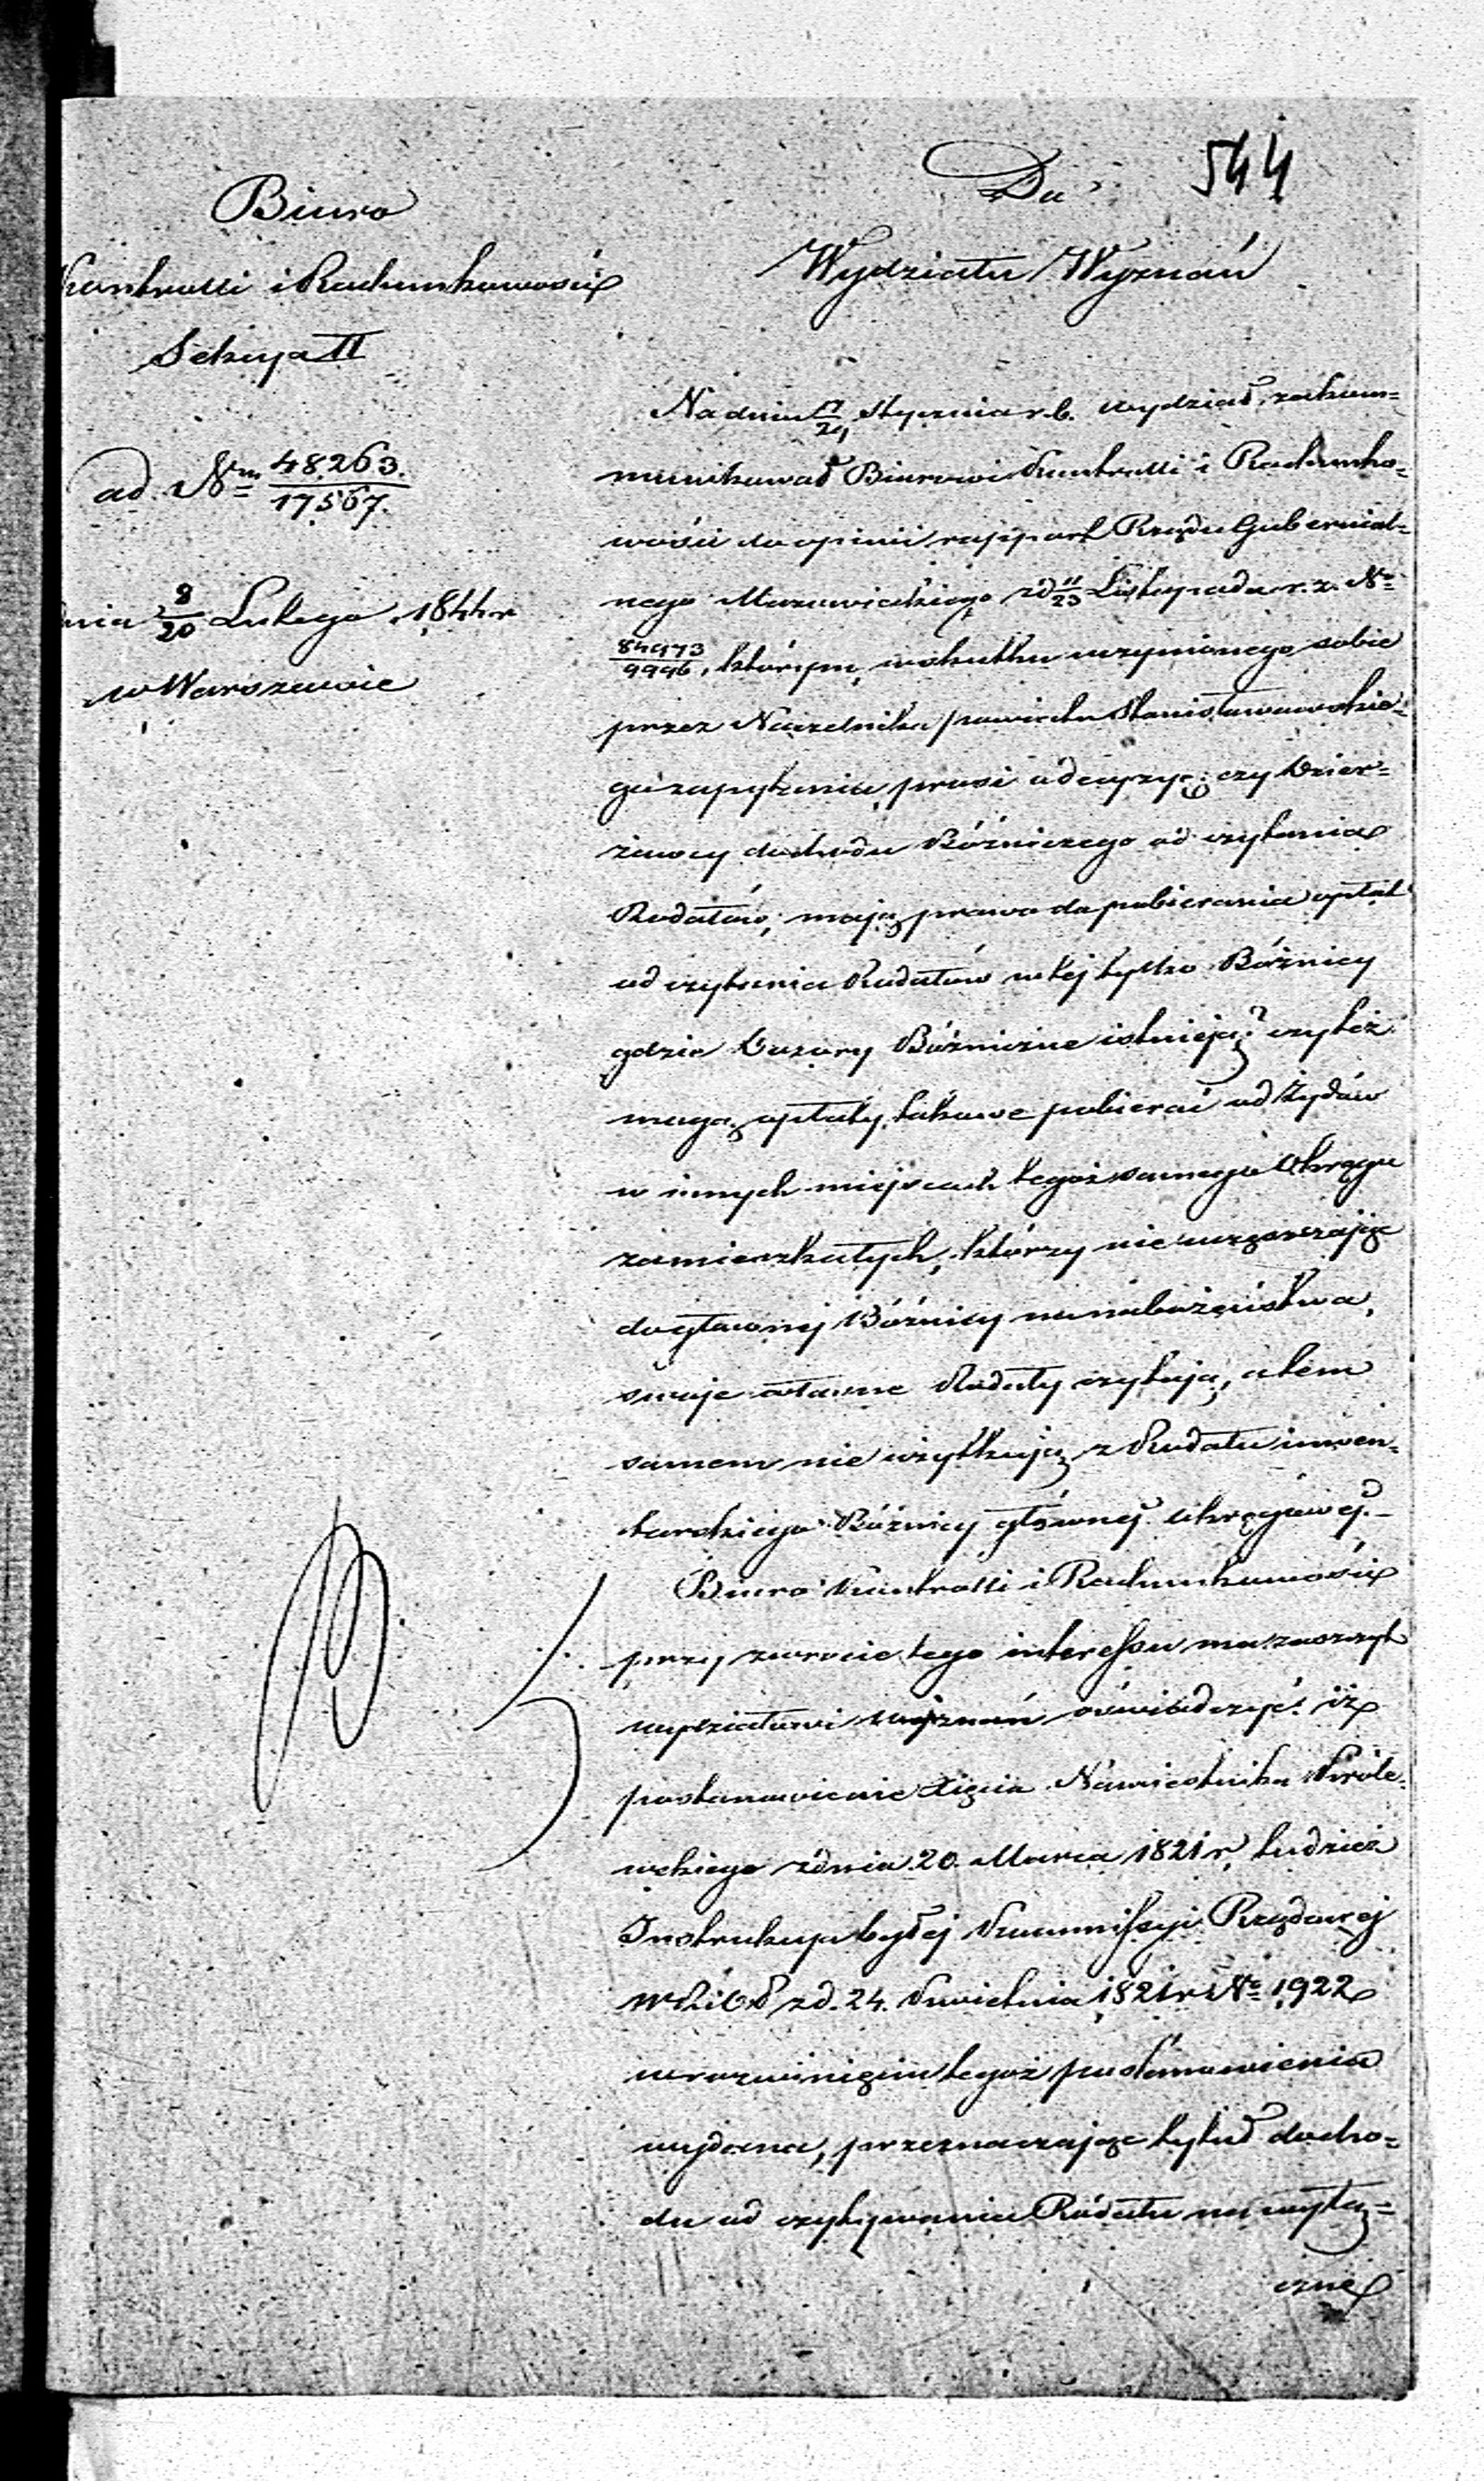 544
Biuro
Kontrolli i Rachunkowości
Sekcya II
ad Nm 48263./17567.
dnia 8/20 Lutego 1844 r
w Warszawie
Do
Wydziału Wyznań
Na dniu 17/29 Stycznia r.b. wydział zakom=
munikował Biurowi Kontrolli i Rachunko=
wości do opinii rapport Rządu Gubernial=
nego Mazowieckiego z d 11/23 Listopada r.z. No
84973/9996, którym, w skutku uczynionego sobie
przez Naczelnika powiatu Stanisławowskie=
go zapytania, prosi o decyzyę: czy Dzier=
żawcy dochodu Bóżniczego od czytania
Rodałów, mają prawo do pobierania opłat
od czytania Rodałów w tej tylko Bóżnicy
gdzie Dozory Bóżnicze istnieją? czy też
mogą opłaty takowe pobierać od Żydów
w innych miejscach tegoż samego Okręgu
zamieszkałych, którzy nie uczęszczając
do głównej Bóżnicy na nabożeństwa,
swoje własne Rodały czytają, a tem
samem nie użytkują z Rodału inwen=
tarskiego Bóżnicy głównej okręgowej?_
Biuro Kontrolli i Rachunkowości
przy zwrocie tego interessu ma zaszczyt
wydziałowi wyznań oświadczyć: iż
postanowienie Xięcia Namiestnika Króle=
wskiego z dnia 20. Marca 1821 r, tudzież
Instrukcya byłej Kommissyi Rządowej
W R i O P z d. 24. Kwietnia 1821 r No 1922
w rozwinięciu tegoż postanowienia
wydana, przeznaczając tytuł docho=
du od czytywania Rodału na wyłą=
czne